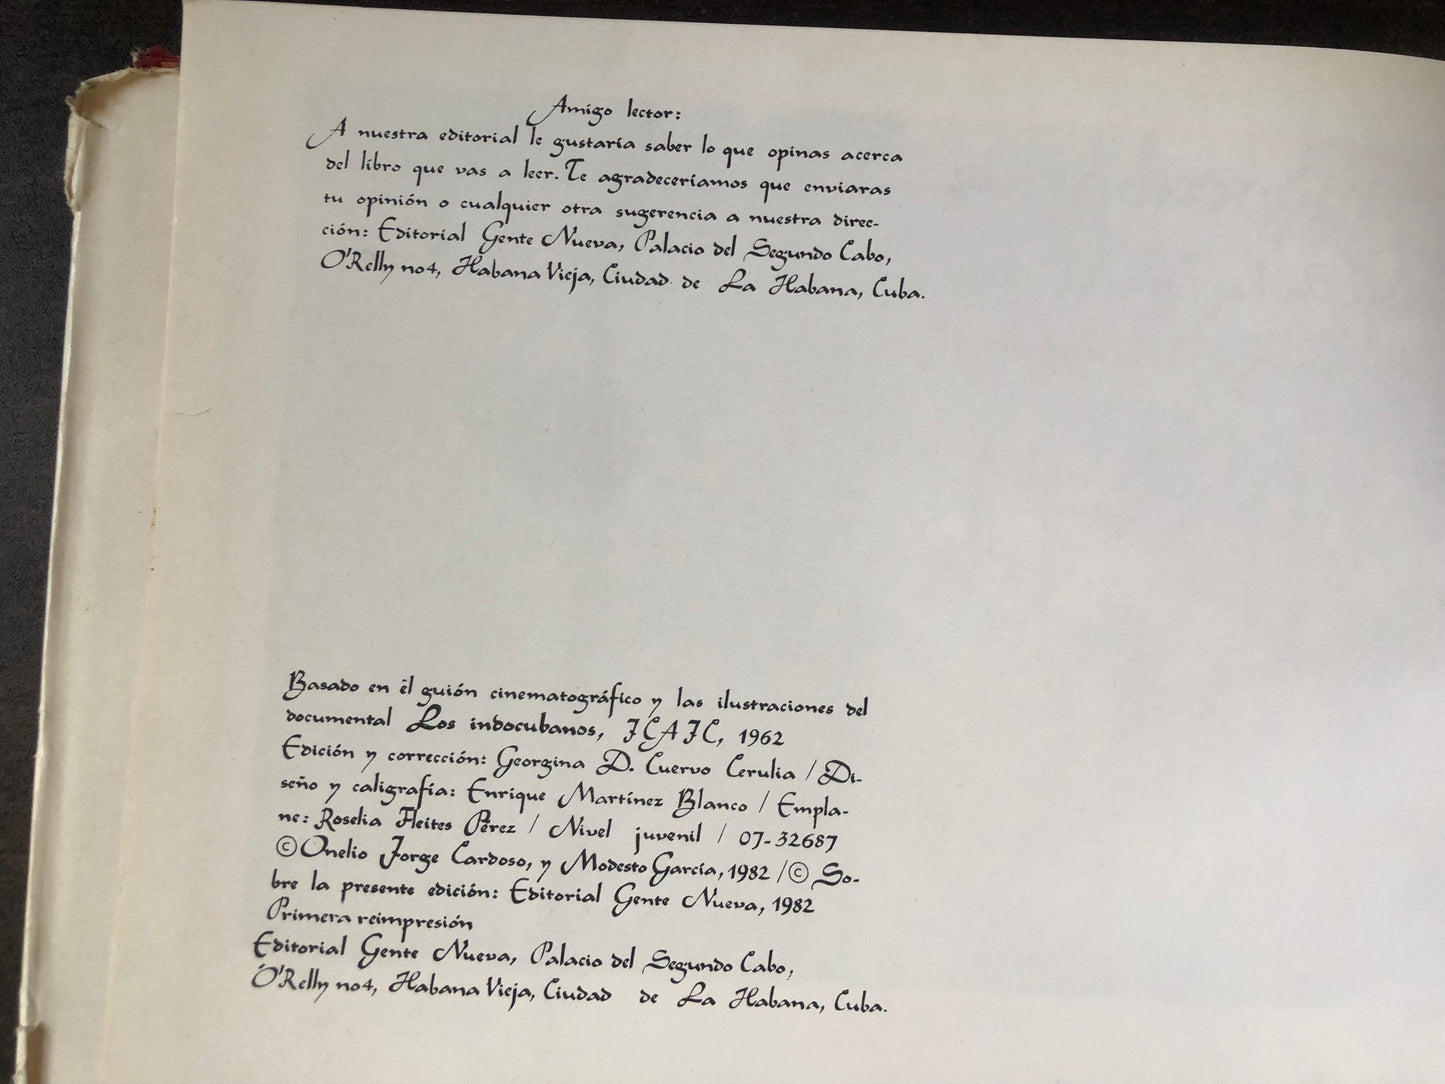 Amigo lector:
A nuestra editorial le gustaría saber lo que opinas acerca
del libro que vas a leer. Te agradeceríamos que enviaras
tu opinión o cualquier otra sugerencia a nuestra direc-
ción: Editorial Gente Nueva, Palacio del Segundo Cabo,
O'Relly no 4, Habana Vieja, Ciudad de La Habana, Cuba.
Basado en el guión cinematográfico y las ilustraciones del
documental Los indocubanos, ICAIC, 1962
Edición y corrección: Georgina D. Cuervo Cerulia / Di-
seño y caligrafía: Enrique Martínez Blanco / Empla-
ne: Roselia Fleites Pérez / Nivel juvenil / 07-32687
© Onelio Jorge Cardoso, y Modesto García, 1982 / © So-
bre la presente edición: Editorial Gente Nueva, 1982
Primera reimpresión
Editorial Gente Nueva, Palacio del Segundo Cabo,
O'Relly no 4, Habana Vieja, Ciudad de La Habana, Cuba.